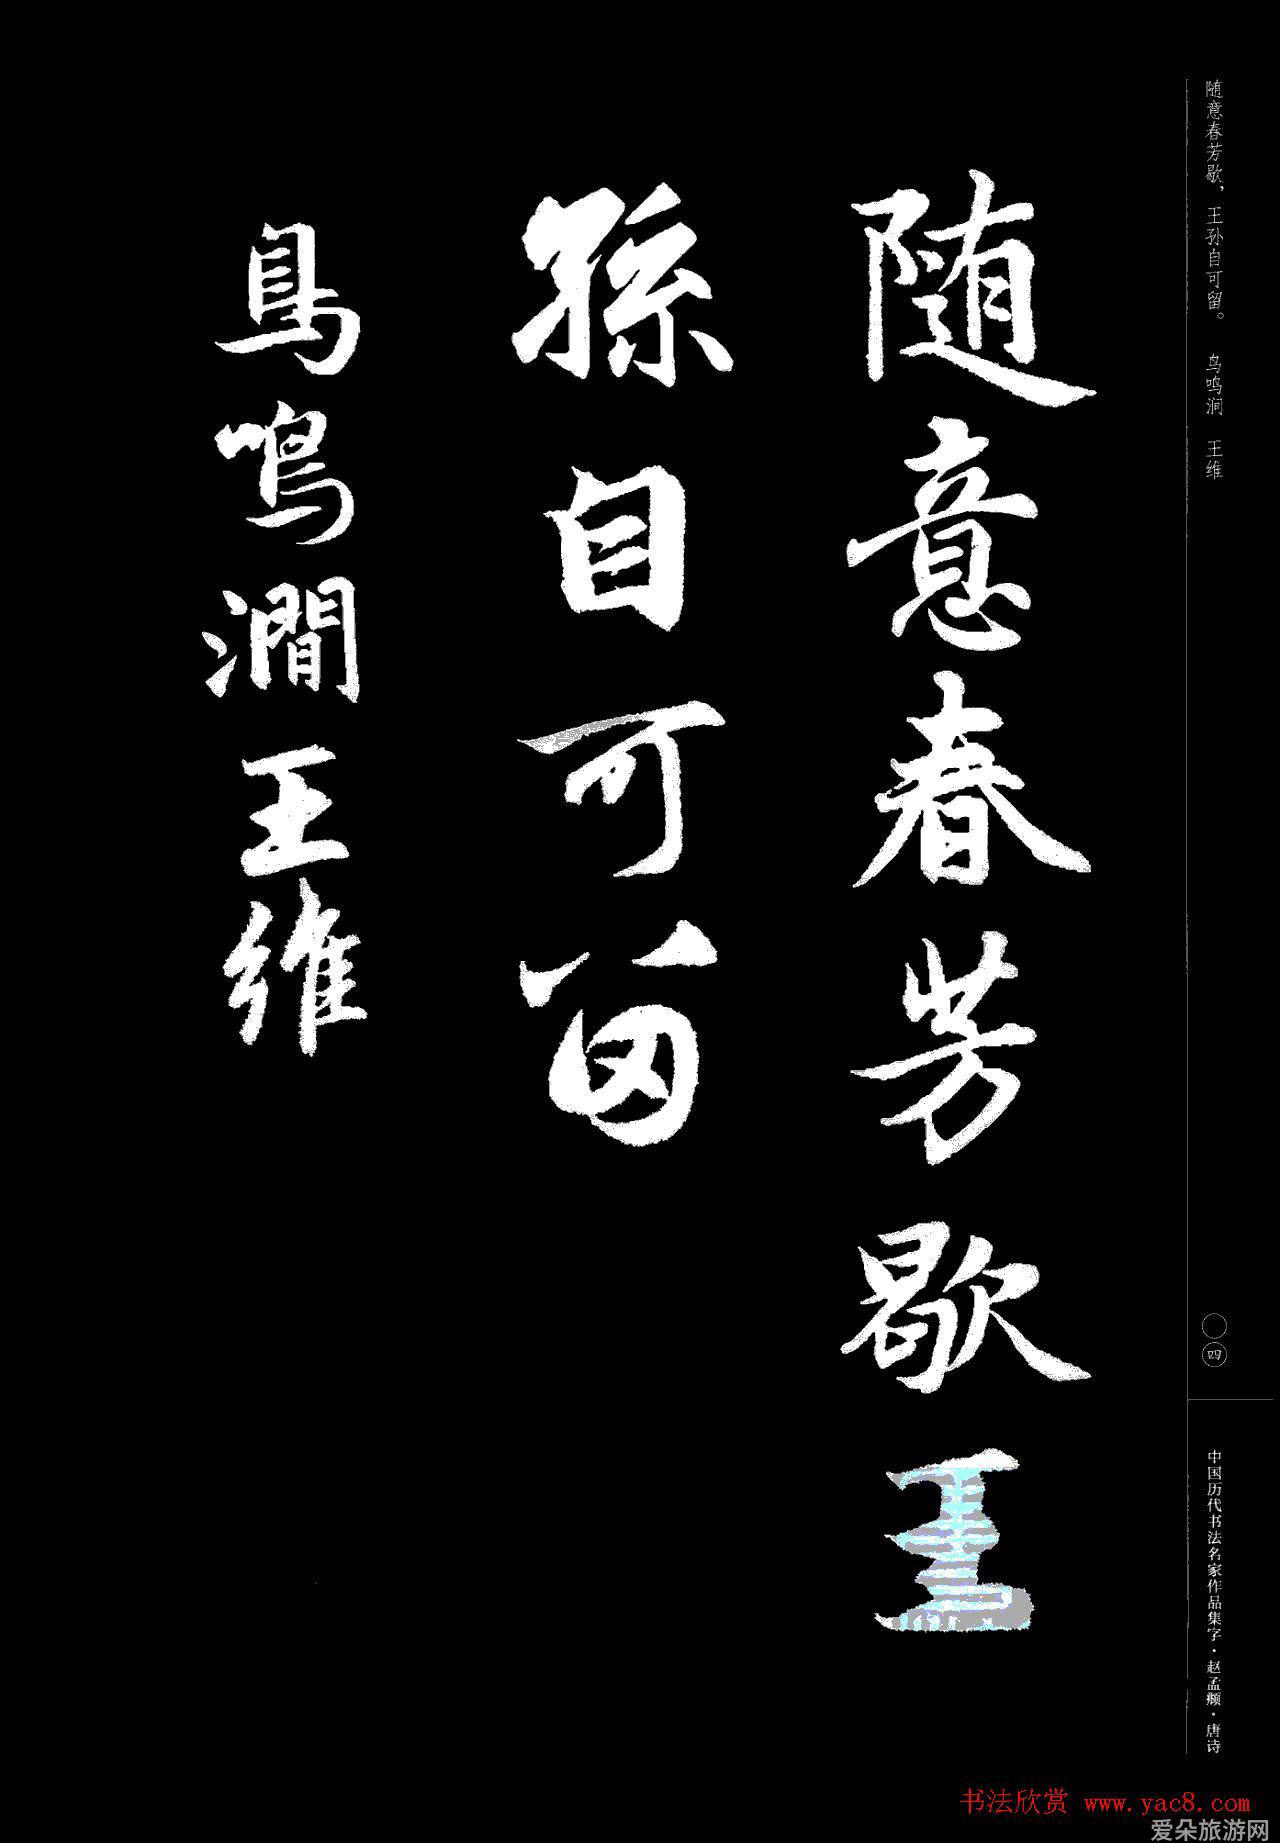 随意春芳歇，王孙自可留。 鸟鸣涧 王维
随意春芳歇王
孫自可留
鳥鳴澗王維
〇四
中国历代书法名家作品集字·赵孟頫·唐诗
书法欣赏 www.yac8.com
爱朵旅游网